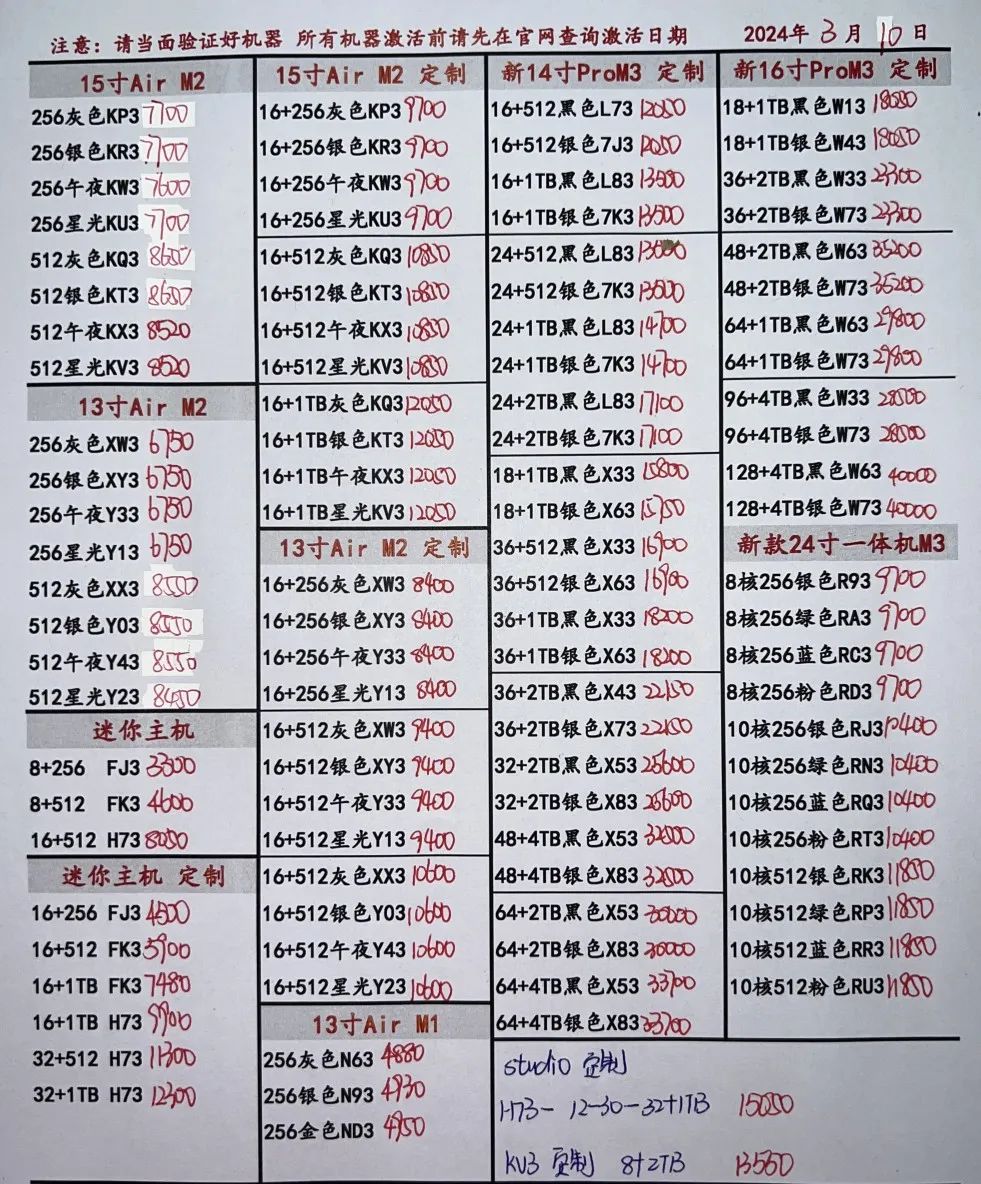 注意：请当面验证好机器 所有机器激活前请先在官网查询激活日期 2024年 3 月 10 日
15寸Air M2
256灰色KP3 7700
256银色KR3 7700
256午夜KW3 7600
256星光KU3 7700
512灰色KQ3 8650
512银色KT3 8650
512午夜KX3 8520
512星光KV3 8520
13寸Air M2
256灰色XW3 6750
256银色XY3 6750
256午夜Y33 6750
256星光Y13 6750
512灰色XX3 8550
512银色Y03 8550
512午夜Y43 8550
512星光Y23 8450
迷你主机
8+256 FJ3 3300
8+512 FK3 4600
16+512 H73 8050
迷你主机 定制
16+256 FJ3 4500
16+512 FK3 5900
16+1TB FK3 7480
16+1TB H73 9900
32+512 H73 11300
32+1TB H73 12300
15寸Air M2 定制
16+256灰色KP3 9700
16+256银色KR3 9700
16+256午夜KW3 9700
16+256星光KU3 9700
16+512灰色KQ3 10850
16+512银色KT3 10850
16+512午夜KX3 10850
16+512星光KV3 10850
16+1TB灰色KQ3 12050
16+1TB银色KT3 12050
16+1TB午夜KX3 12050
16+1TB星光KV3 12050
13寸Air M2 定制
16+256灰色XW3 8400
16+256银色XY3 8400
16+256午夜Y33 8400
16+256星光Y13 8400
16+512灰色XW3 9400
16+512银色XY3 9400
16+512午夜Y33 9400
16+512星光Y13 9400
16+512灰色XX3 10600
16+512银色Y03 10600
16+512午夜Y43 10600
16+512星光Y23 10600
13寸Air M1
256灰色N63 4880
256银色N93 4930
256金色ND3 4950
新14寸ProM3 定制
16+512黑色L73 12050
16+512银色7J3 12050
16+1TB黑色L83 13500
16+1TB银色7K3 13500
24+512黑色L83
24+512银色7K3 13500
24+1TB黑色L83 14700
24+1TB银色7K3 14700
24+2TB黑色L83 17100
24+2TB银色7K3 17100
18+1TB黑色X33 15800
18+1TB银色X63 15750
36+512黑色X33 16900
36+512银色X63 16900
36+1TB黑色X33 18200
36+1TB银色X63 18200
36+2TB黑色X43 22150
36+2TB银色X73 22150
32+2TB黑色X53 25600
32+2TB银色X83 25600
48+4TB黑色X53 32800
48+4TB银色X83 32800
64+2TB黑色X53 30000
64+2TB银色X83 30000
64+4TB黑色X53 33700
64+4TB银色X83 33700
新16寸ProM3 定制
18+1TB黑色W13 18050
18+1TB银色W43 18050
36+2TB黑色W33 23300
36+2TB银色W73 23300
48+2TB黑色W63 35200
48+2TB银色W73 35200
64+1TB黑色W63 29800
64+1TB银色W73 29800
96+4TB黑色W33 28500
96+4TB银色W73 28500
128+4TB黑色W63 40000
128+4TB银色W73 40000
新款24寸一体机M3
8核256银色R93 9700
8核256绿色RA3 9700
8核256蓝色RC3 9700
8核256粉色RD3 9700
10核256银色RJ3 10400
10核256绿色RN3 10400
10核256蓝色RQ3 10400
10核256粉色RT3 10400
10核512银色RK3 11850
10核512绿色RP3 11850
10核512蓝色RR3 11850
10核512粉色RU3 11850
studio 定制
H73- 12-30-32+1TB 15050
KV3 定制 8+2TB 13550